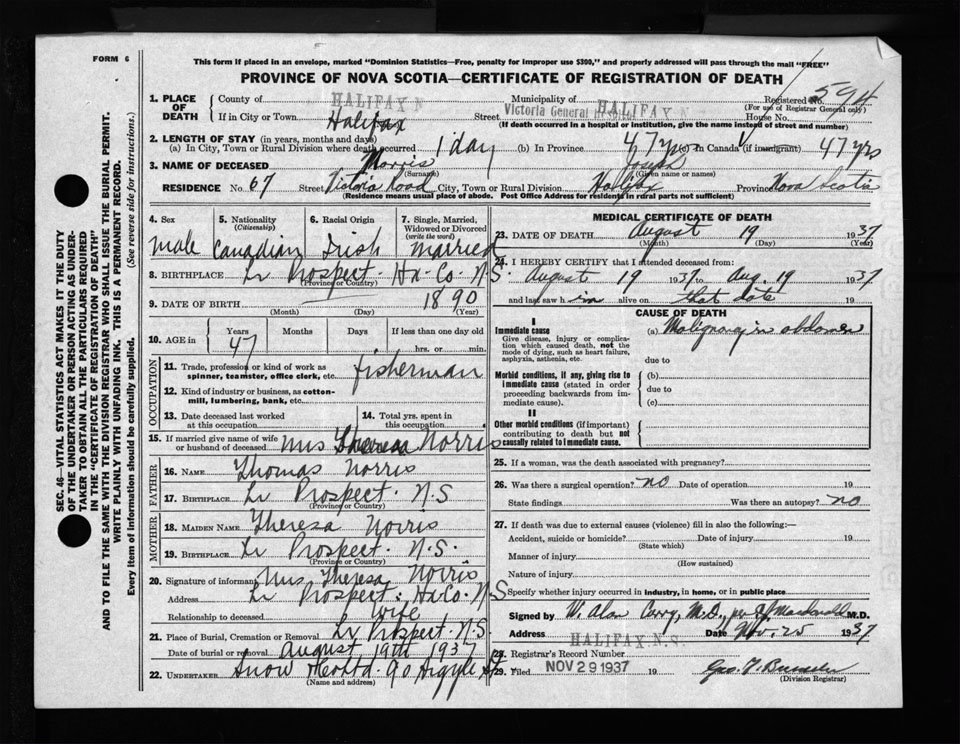 FORM 6
This form if placed in an envelope, marked "Dominion Statistics—Free, penalty for improper use $300," and properly addressed will pass through the mail "FREE"
PROVINCE OF NOVA SCOTIA—CERTIFICATE OF REGISTRATION OF DEATH
1. PLACE OF DEATH
County of HALIFAX N Municipality of HALIFAX N. Registered No. 594
(For use of Registrar General only)
If in City or Town Halifax Street Victoria General House No.
(If death occurred in a hospital or institution, give the name instead of street and number)
2. LENGTH OF STAY (in years, months and days)
(a) In City, Town or Rural Division where death occurred 1 day (b) In Province 47 yrs (c) In Canada (if immigrant) 47 yrs
3. NAME OF DECEASED Morris Joseph
(Surname) (Given name or names)
RESIDENCE No. 67 Street Victoria Road City, Town or Rural Division Halifax Province Nova Scotia
(Residence means usual place of abode. Post Office Address for residents in rural parts not sufficient)
4. Sex male
5. Nationality (Citizenship) Canadian
6. Racial Origin Irish
7. Single, Married, Widowed or Divorced (write the word) married
8. BIRTHPLACE Lr Prospect. Hx. Co. N.S.
(Province or Country)
9. DATE OF BIRTH 1890
(Month) (Day) (Year)
10. AGE in Years 47 Months Days If less than one day old
hrs. or min.
OCCUPATION
11. Trade, profession or kind of work as spinner, teamster, office clerk, etc. fisherman
12. Kind of industry or business, as cotton-mill, lumbering, bank, etc.
13. Date deceased last worked at this occupation
14. Total yrs. spent in this occupation
15. If married give name of wife or husband of deceased Mrs Theresa Norris
FATHER
16. NAME Thomas Norris
17. BIRTHPLACE Lr Prospect. N.S
(Province or Country)
MOTHER
18. MAIDEN NAME Theresa Norris
19. BIRTHPLACE Lr Prospect. N.S.
(Province or Country)
20. Signature of informant Mrs Theresa Norris
Address Lr Prospect. Hx Co. N.S
Relationship to deceased wife
21. Place of Burial, Cremation or Removal Lr Prospect. N.S
Date of burial or removal August 19th 1937
22. UNDERTAKER Snow 90 Argyle St.
(Name and address)
MEDICAL CERTIFICATE OF DEATH
23. DATE OF DEATH August 19 1937
(Month) (Day) (Year)
24. I HEREBY CERTIFY that I attended deceased from:
August 19 1937 to Aug 19 1937
and last saw him alive on that date 19
CAUSE OF DEATH
I
Immediate cause
Give disease, injury or complication which caused death, not the mode of dying, such as heart failure, asphyxia, asthenia, etc.
(a) Malignancy in abdomen
due to
Morbid conditions, if any, giving rise to immediate cause (stated in order proceeding backwards from immediate cause).
(b)
due to
(c)
II
Other morbid conditions (if important) contributing to death but not causally related to immediate cause.
25. If a woman, was the death associated with pregnancy?
26. Was there a surgical operation? no Date of operation 19
State findings Was there an autopsy? no
27. If death was due to external causes (violence) fill in also the following:—
Accident, suicide or homicide? Date of injury 19
(State which)
Manner of injury
(How sustained)
Nature of injury
Specify whether injury occurred in industry, in home, or in public place
Signed by W. Alan Curry, M.D., per Macdonald M.D.
Address HALIFAX N.S. Date Nov. 25 1937
28. Registrar's Record Number
29. Filed NOV 29 1937 19
(Division Registrar)
SEC. 46—VITAL STATISTICS ACT MAKES IT THE DUTY OF THE UNDERTAKER OR PERSON ACTING AS UNDERTAKER TO OBTAIN ALL THE PARTICULARS REQUIRED IN THE "CERTIFICATE OF REGISTRATION OF DEATH" AND TO FILE THE SAME WITH THE DIVISION REGISTRAR WHO SHALL ISSUE THE BURIAL PERMIT.
WRITE PLAINLY WITH UNFADING INK. THIS IS A PERMANENT RECORD.
Every item of information should be carefully supplied. (See reverse side for instructions.)